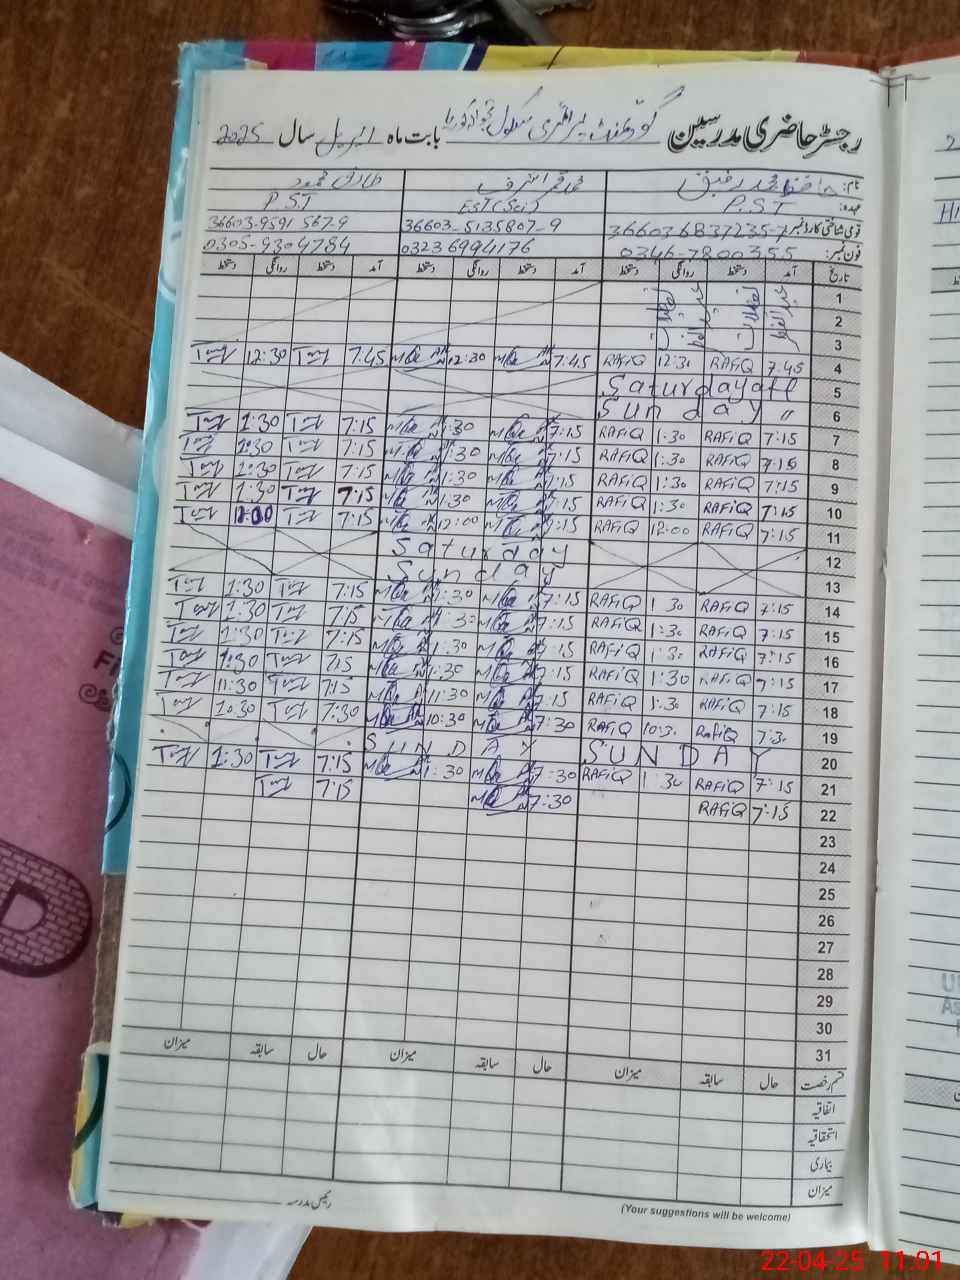 رجسٹر حاضری مدرسین گورنمنٹ پرائمری سکول بابت ماہ اپریل سال 2025
نام: حافظ محمد رفیق محمد اشرف طارق محمود
عہدہ: P.S.T EST(Sci) P.S.T
قومی شناختی کارڈ نمبر: 366036837235-7 36603-5135807-9 36603-9591567-9
فون نمبر: 0346-7800355 03236994176 0305-9304784
تاریخ آمد دستخط روانگی دستخط آمد دستخط روانگی دستخط آمد دستخط روانگی دستخط
1 عید الفطر تعطیلات عید الفطر تعطیلات
2
3
4 7.45 RAFiQ 12:30 RAFiQ 7.45 12:30 7.45 12:30
5 Saturday off
6 Sunday "
7 7:15 RAFiQ 1:30 RAFiQ 7:15 1:30 7:15 1:30
8 7:15 RAFiQ 1:30 RAFiQ 7:15 1:30 7:15 1:30
9 7:15 RAFiQ 1:30 RAFiQ 7:15 1:30 7:15 1:30
10 7:15 RAFiQ 1:30 RAFiQ 7:15 1:30 7:15 1:30
11 7:15 RAFiQ 12:00 RAFiQ 7:15 12:00 7:15
12 Saturday
13 Sunday
14 7:15 RAFiQ 1:30 RAFiQ 7:15 1:30 7:15 1:30
15 7:15 RAFiQ 1:30 RAFiQ 7:15 1:30 7:15 1:30
16 7:15 RAFiQ 1:30 RAFiQ 7:15 1:30 7:15 1:30
17 7:15 RAFiQ 1:30 RAFiQ 7:15 1:30 7:15 1:30
18 7:15 RAFiQ RAFiQ 7:15 11:30 7:15 11:30
19 7:30 RAFiQ 10:30 RAFiQ 7:30 10:30 7:30 10:30
20 SUNDAY SUNDAY
21 7:15 RAFiQ 1:30 RAFiQ 7:30 1:30 7:15 1:30
22 7:15 RAFiQ 7:30 7:15
23
24
25
26
27
28
29
30
31
قسم رخصت حال سابقہ میزان حال سابقہ میزان حال سابقہ میزان
اتفاقیہ
استحقاقیہ
بیماری
میزان
رئیس مدرسہ
(Your suggestions will be welcome)
22-04-25 11:01